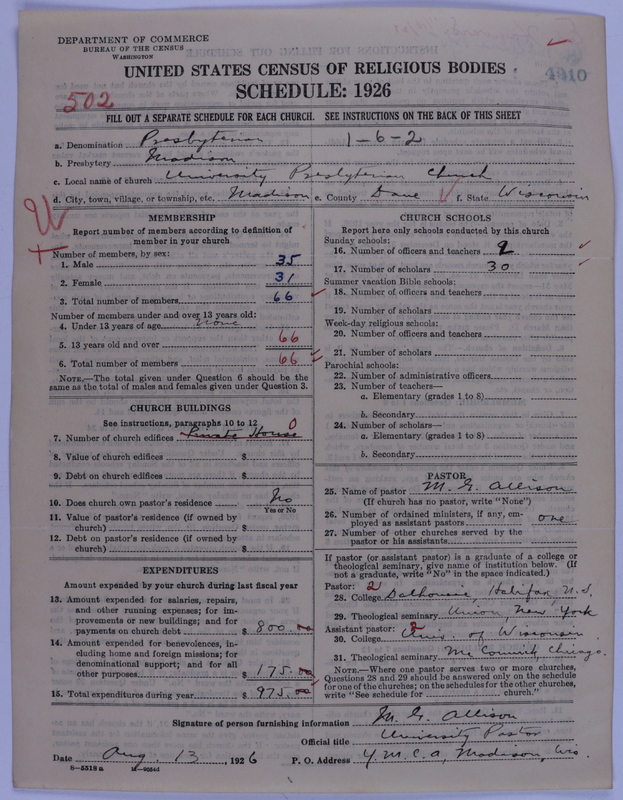 DEPARTMENT OF COMMERCE
BUREAU OF THE CENSUS
WASHINGTON
UNITED STATES CENSUS OF RELIGIOUS BODIES
4910
502
SCHEDULE: 1926
FILL OUT A SEPARATE SCHEDULE FOR EACH CHURCH. SEE INSTRUCTIONS ON THE BACK OF THIS SHEET
a. Denomination Presbyterian 1-6-2
b. Presbytery Madison
c. Local name of church University Presbyterian Church
d. City, town, village, or township, etc. Madison e. County Dane f. State Wisconsin
MEMBERSHIP
Report number of members according to definition of
member in your church
Number of members, by sex:
1. Male 35
2. Female 31
3. Total number of members 66
Number of members under and over 13 years old:
4. Under 13 years of age none
5. 13 years old and over 66
6. Total number of members 66
NOTE.—The total given under Question 6 should be the
same as the total of males and females given under Question 3.
CHURCH BUILDINGS
See instructions, paragraphs 10 to 12
7. Number of church edifices Private House 0
8. Value of church edifices $
9. Debt on church edifices $
10. Does church own pastor's residence No
Yes or No
11. Value of pastor's residence (if owned by
church) $
12. Debt on pastor's residence (if owned by
church) $
EXPENDITURES
Amount expended by your church during last fiscal year
13. Amount expended for salaries, repairs,
and other running expenses; for im-
provements or new buildings; and for
payments on church debt $ 800.00
14. Amount expended for benevolences, in-
cluding home and foreign missions; for
denominational support; and for all
other purposes $ 175.00
15. Total expenditures during year $ 975.00
CHURCH SCHOOLS
Report here only schools conducted by this church
Sunday schools:
16. Number of officers and teachers 2
17. Number of scholars 30
Summer vacation Bible schools:
18. Number of officers and teachers
19. Number of scholars
Week-day religious schools:
20. Number of officers and teachers
21. Number of scholars
Parochial schools:
22. Number of administrative officers
23. Number of teachers—
a. Elementary (grades 1 to 8)
b. Secondary
24. Number of scholars—
a. Elementary (grades 1 to 8)
b. Secondary
PASTOR
25. Name of pastor M. G. Allison
(If church has no pastor, write "None")
26. Number of ordained ministers, if any, em-
ployed as assistant pastors one
27. Number of other churches served by the
pastor or his assistants
If pastor (or assistant pastor) is a graduate of a college or
theological seminary, give name of institution below. (If
not a graduate, write "No" in the space indicated.)
Pastor: 2
28. College Dalhousie, Halifax, N.S.
29. Theological seminary Union, New York
Assistant pastor: 2
30. College Univ. of Wisconsin
31. Theological seminary McCormick, Chicago.
NOTE.—Where one pastor serves two or more churches,
Questions 28 and 29 should be answered only on the schedule
for one of the churches; on the schedules for the other churches,
write "See schedule for church."
Signature of person furnishing information M. G. Allison
Official title University Pastor
Date Aug. 13, 1926 P. O. Address Y.M.C.A, Madison, Wis.
8-5518a